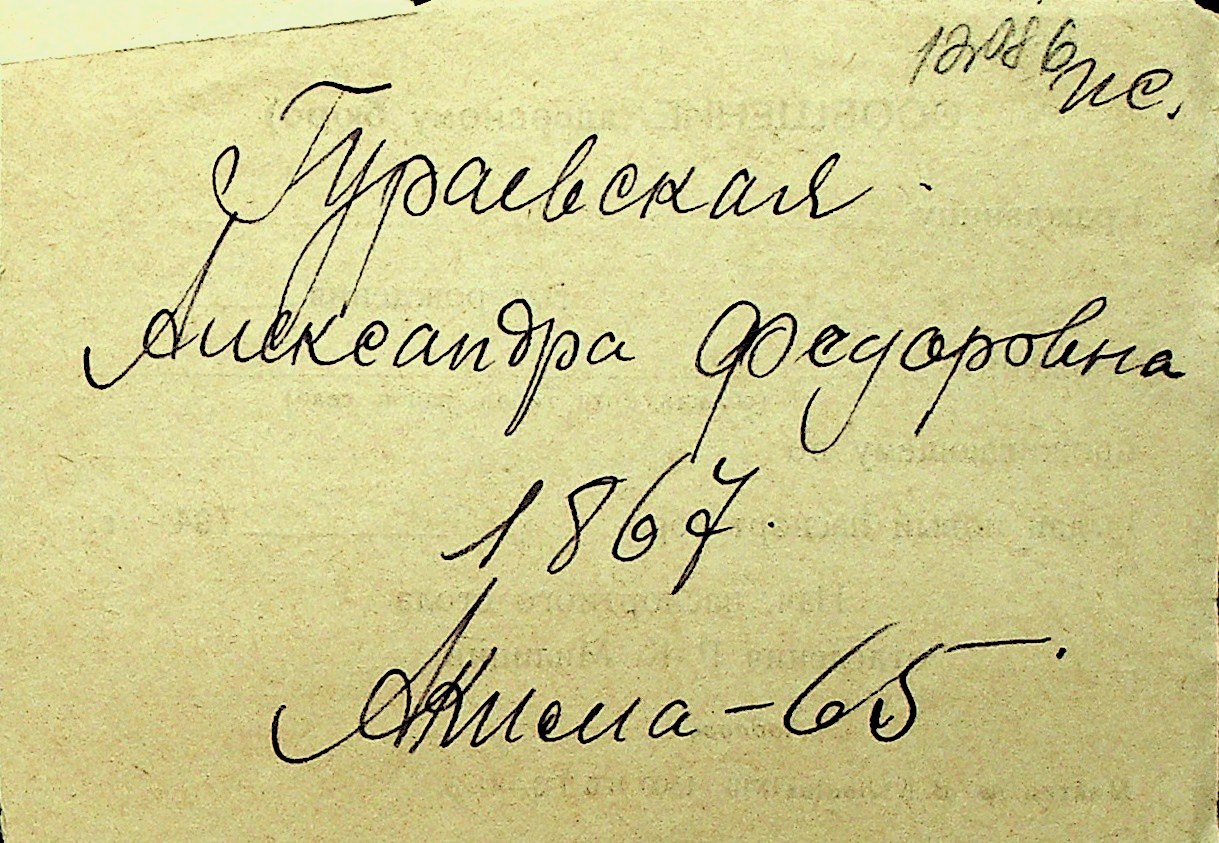 12986 пс.
Гураевская
Александра Федоровна
1867.
65.